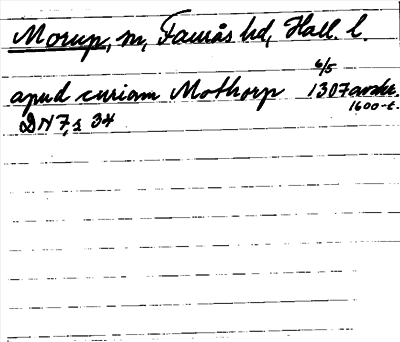 Morup, sn, Faurås hd, Hall. l.
apud curiam Mothorp 6/5 1307 avskr. 1600-t.
DN 7, s 34